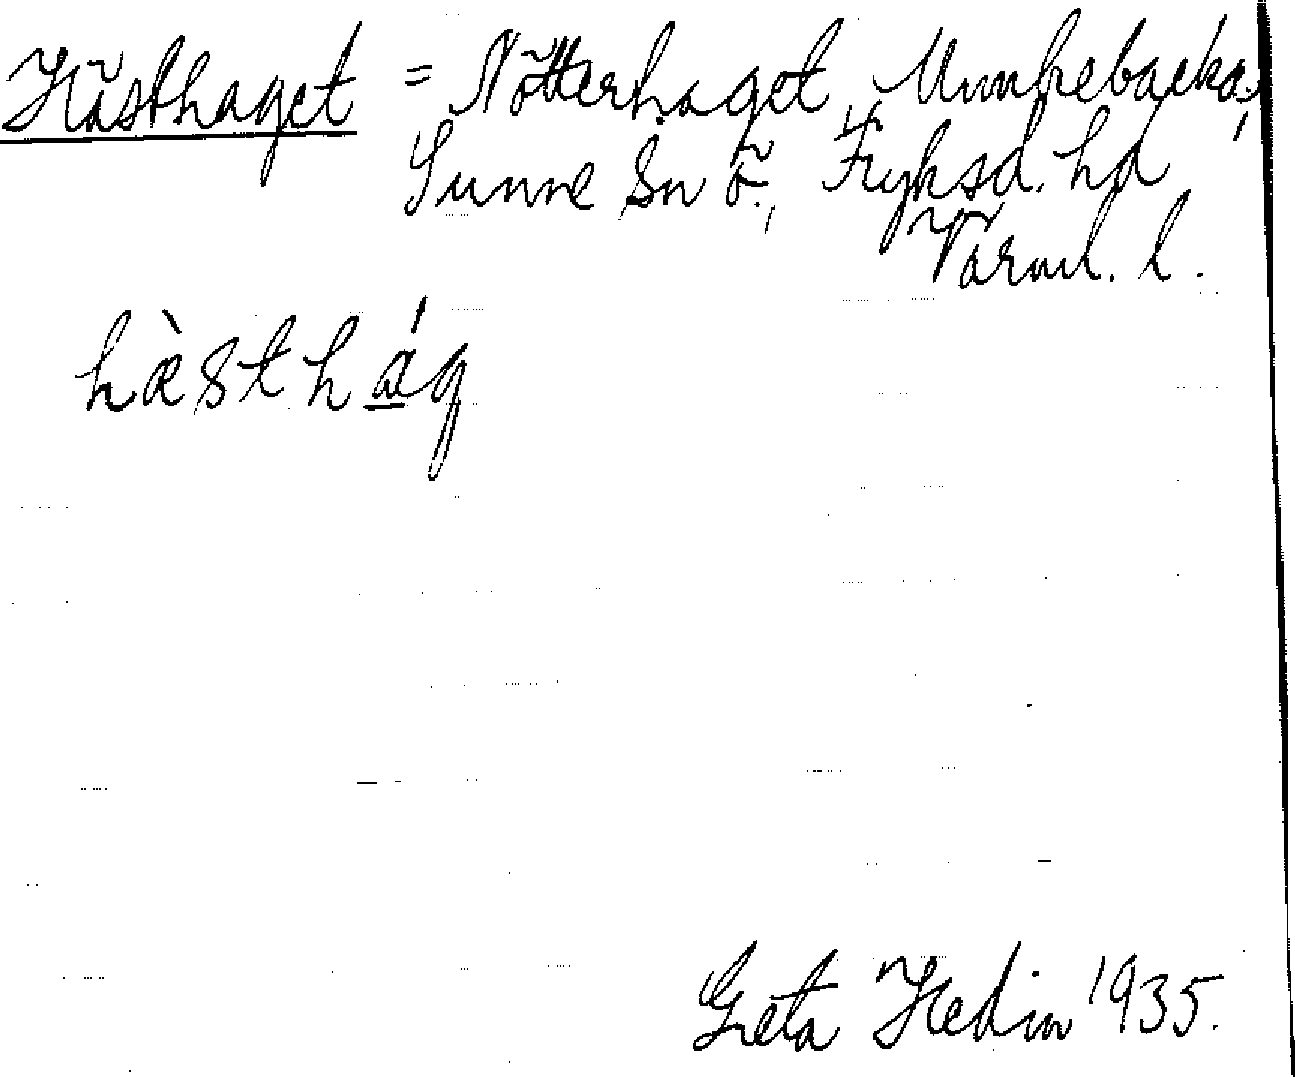 Hästhaget = Nötterhaget, Munkebacka,
Sunne Sn ö., Fryksd. hd
Värml. l.
hæ̀sthág
Greta Hedin 1935.